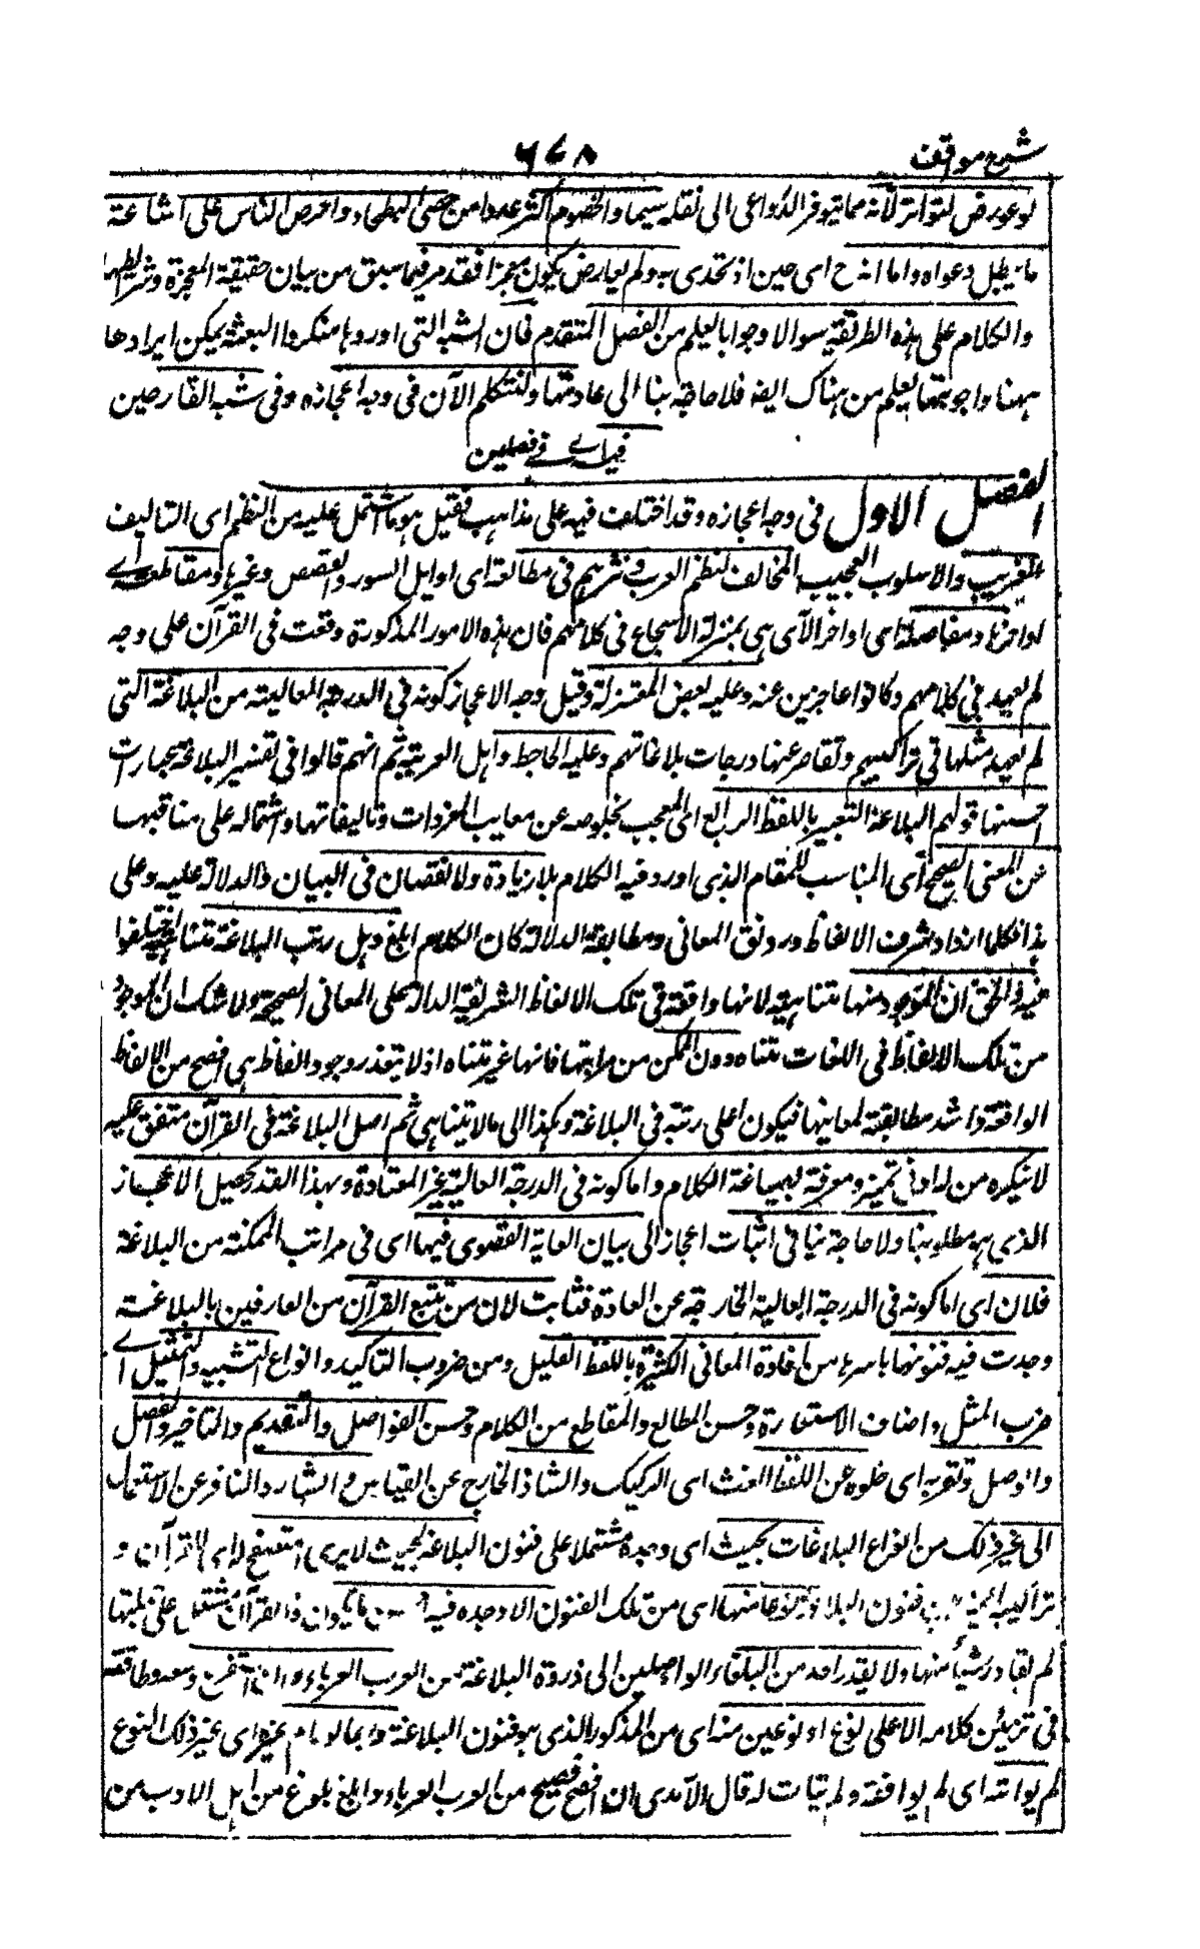 شرح مواقف
٦٧٨
لو عورض لتواتر لانه مما يتوفر الدواعى الى نقله سيما والخصوم اكثر عددا من حصى البطحاء واحرص الناس على اشاعة
ما يبطل دعواه واما انه ح اى حين اذ تحدى به ولم يعارض يكون معجزا فقد مر فيما سبق من بيان حقيقة المعجزة وشرائطها
والكلام على هذه الطريقة سوالا وجوابا يعلم من الفصل المتقدم فان الشبه التى اوردها منكروا البعثة يمكن ايرادها
ههنا واجوبتها يعلم من هناك ايضا فلا حاجة بنا الى عادتها ولنتكلم الآن فى وجه اعجازه وفى شبه القادحين
فيه اے فے فصلين
الفصل الاول فى وجه اعجازه وقد اختلف فيه على مذاهب فقيل هو ما اشتمل عليه من النظم اى التاليف
الغريب والاسلوب العجيب المخالف لنظم العرب ونثرهم فى مطالعه اى اوايل السور والقصص وغيرها ومقاطعه اے
اواخرها ومفاصله اى اواخر الآى هى بمنزلة الاسجاع فى كلامهم فان هذه الامور المذكورة وقعت فى القرآن على وجه
لم يعهد فى كلامهم وكانوا عاجزين عنه وعليه بعض المعتزلة وقيل وجه الاعجاز كونه فى الدرجة العالية من البلاغة التى
لم يعهد مثلها فى تراكيبهم وتقاصر عنها درجات بلاغاتهم وعليه الجاحظ واهل العربية ثم انهم قالوا فى تفسير البلاغة عبارات
احسنها قولهم البلاغة التعبير باللفظ الرائع اى المعجب بخلوصه عن معايب المفردات وتاليفاتها واشتماله على مناقبها
عن المعنى الصحيح اى المناسب للمقام الذى اورد فيه الكلام بلا زيادة ولا نقصان فى البيان والدلالة عليه وعلى
هذا فكلما ازداد شرف الالفاظ ورونق المعانى ومطابقة الدلالة كان الكلام ابلغ وهل رتب البلاغة متناهية اختلفوا
فيه والحق ان الموجود منها متناهية لانها واقعة فى تلك الالفاظ الشريفة الدالة على المعانى الصحيحة ولا شك ان الموجود
من تلك الالفاظ فى اللغات متناه دون الممكن من مراتبها فانها غير متناه اذ لا يتعذر وجود الفاظ هى افصح من الالفاظ
الواقعة واشد مطابقة لمعانيها فيكون اعلى رتبة فى البلاغة وهكذا الى مالا يتناهى ثم اصل البلاغة فى القرآن متفق عليه
لا ينكره من له ادنى تميز ومعرفة بصياغة الكلام واما كونه فى الدرجة العالية غير المعتادة وبهذا القدر يحصل الاعجاز
الذى هو مطلوبنا ولا حاجة بنا فى اثبات اعجازه الى بيان الغاية القصوى فيها اى فى مراتب الممكنة من البلاغة
فلان اى اما كونه فى الدرجة العالية الخارجة عن العادة فثابت لان من تتبع القرآن من العارفين بالبلاغة
وجدت فيه فنونها باسرها من افادة المعانى الكثيرة باللفظ القليل ومن ضروب التاكيد وانواع التشبيه والتمثيل اے
ضرب المثل واصناف الاستعارة وحسن المطالع والمقاطع من الكلام وحسن الفواصل والتقديم والتاخير والفصل
والوصل وتعريه اى خلوه عن اللفظ الغث اى الركيك والشاذ الخارج عن القياس والشارد النافر عن الاستعمال
الى غير ذلك من انواع البلاغات بحيث اى وجده مشتملا على فنون البلاغة بحيث لا يرى المتصفح له القرآن و
تراكيبه فنون البلاغة نوعا منها اى من تلك الفنون الا وجده فيه والقرآن مشتمل على كلمتها
لم يغادر شيئا منها ولا يقدر احد من البلغاء الواصلين الى ذروة البلاغة من العرب العرباء وان استفرغ وسعه وطاقته
فى تزيين كلامه الا على نوع او نوعين منه اى من المذكور الذى هو فنون البلاغة وربما لو رام غيره اى غير ذلك النوع
لم يواته اى لم يوافقه ولم يتات له قال الآمدى ان افصح فصيح من العرب العرباء وابلغ بليغ من اهل الادب من